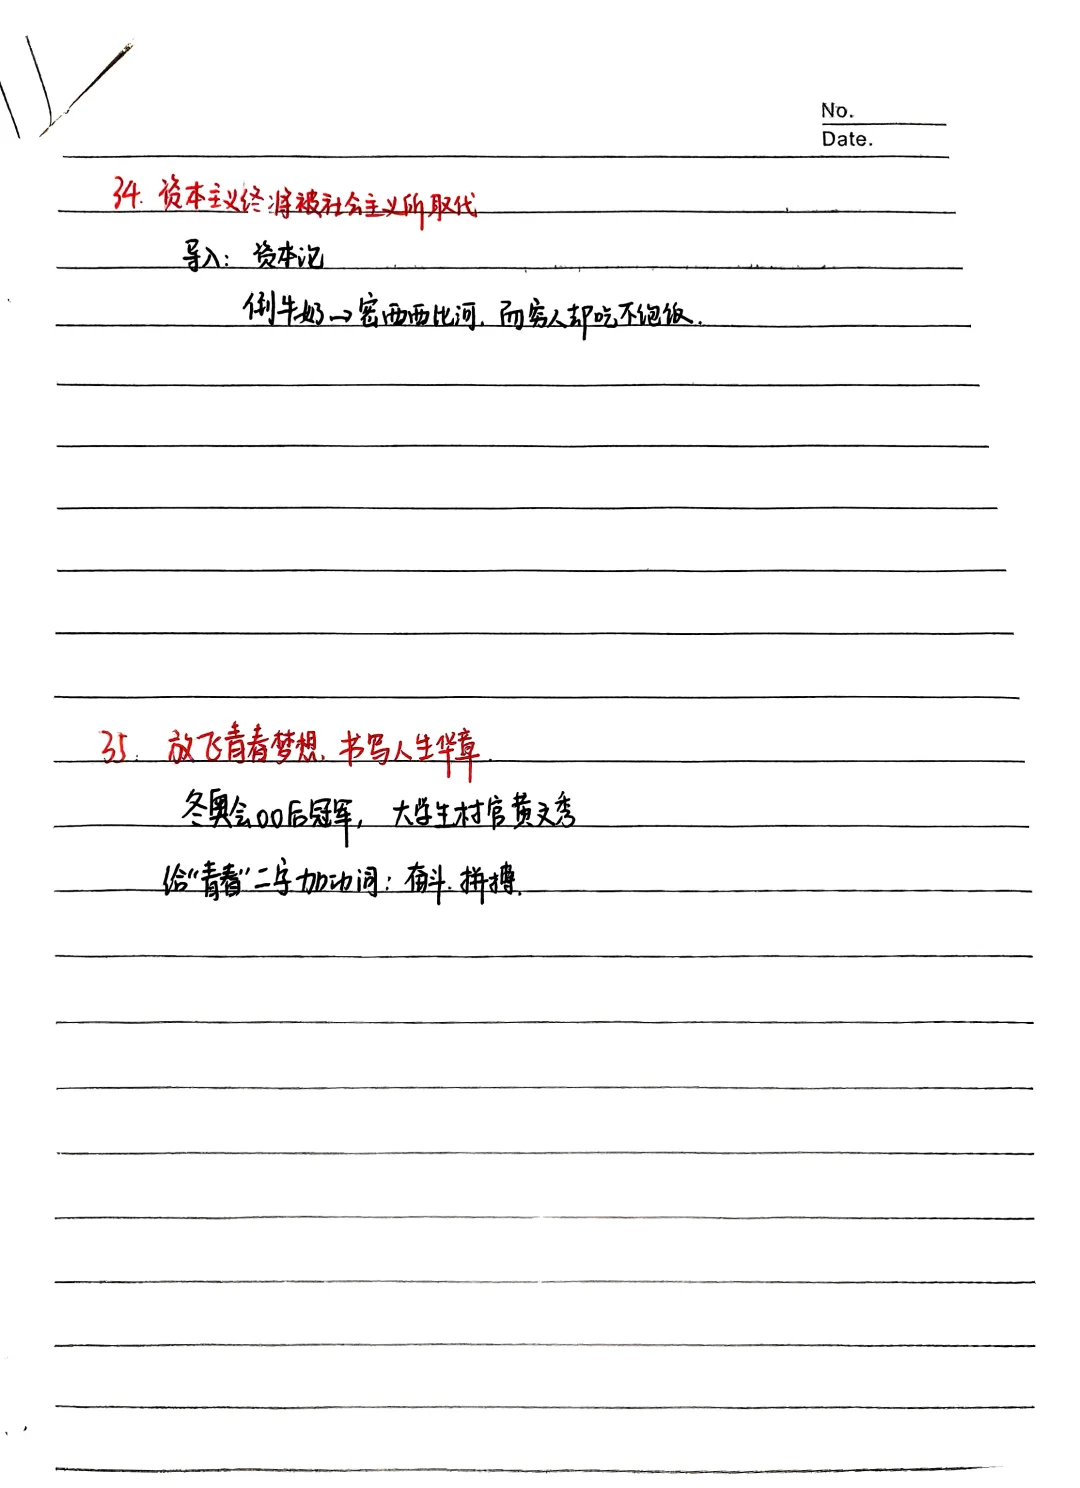 No.
Date.
34. 资本主义终将被社会主义所取代
导入: 资本论
倒牛奶→密西西比河, 而穷人却吃不饱饭.
35. 放飞青春梦想, 书写人生华章.
冬奥会00后冠军, 大学生村官黄文秀
给“青春”二字加动词: 奋斗. 拼搏.